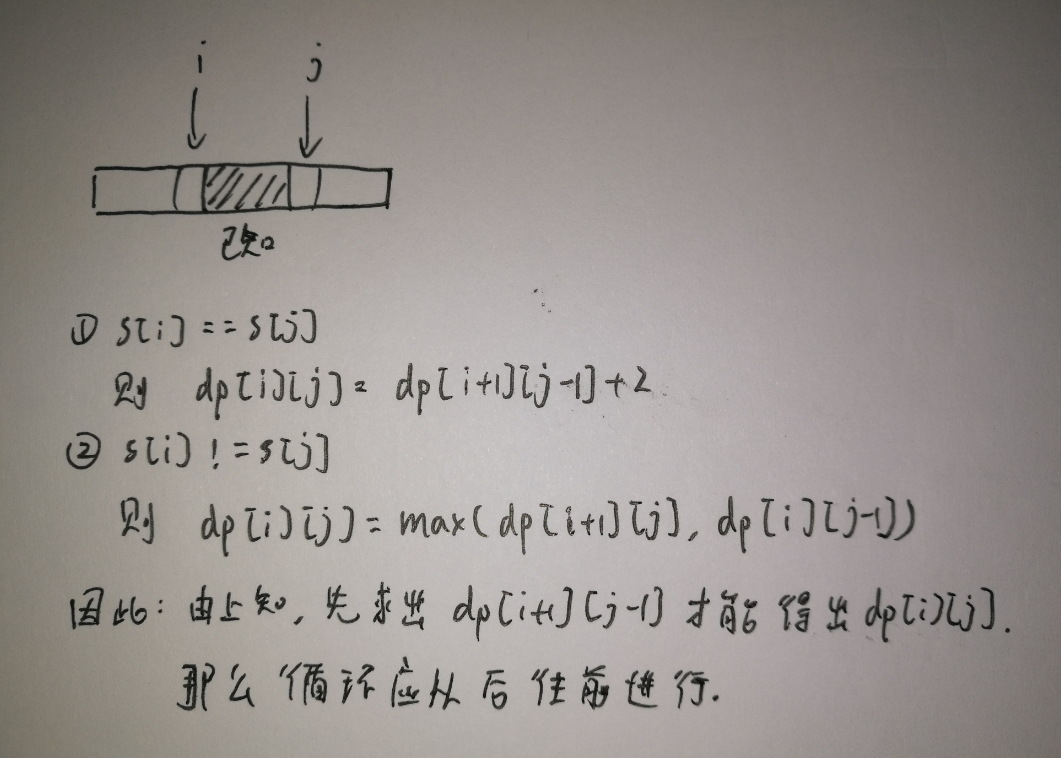 i j
已知
① s[i] == s[j]
则 dp[i][j] = dp[i+1][j-1]+2
② s[i] != s[j]
则 dp[i][j] = max(dp[i+1][j], dp[i][j-1])
因此: 由上知, 先求出 dp[i+1][j-1] 才能得出 dp[i][j].
那么循环应从后往前进行.